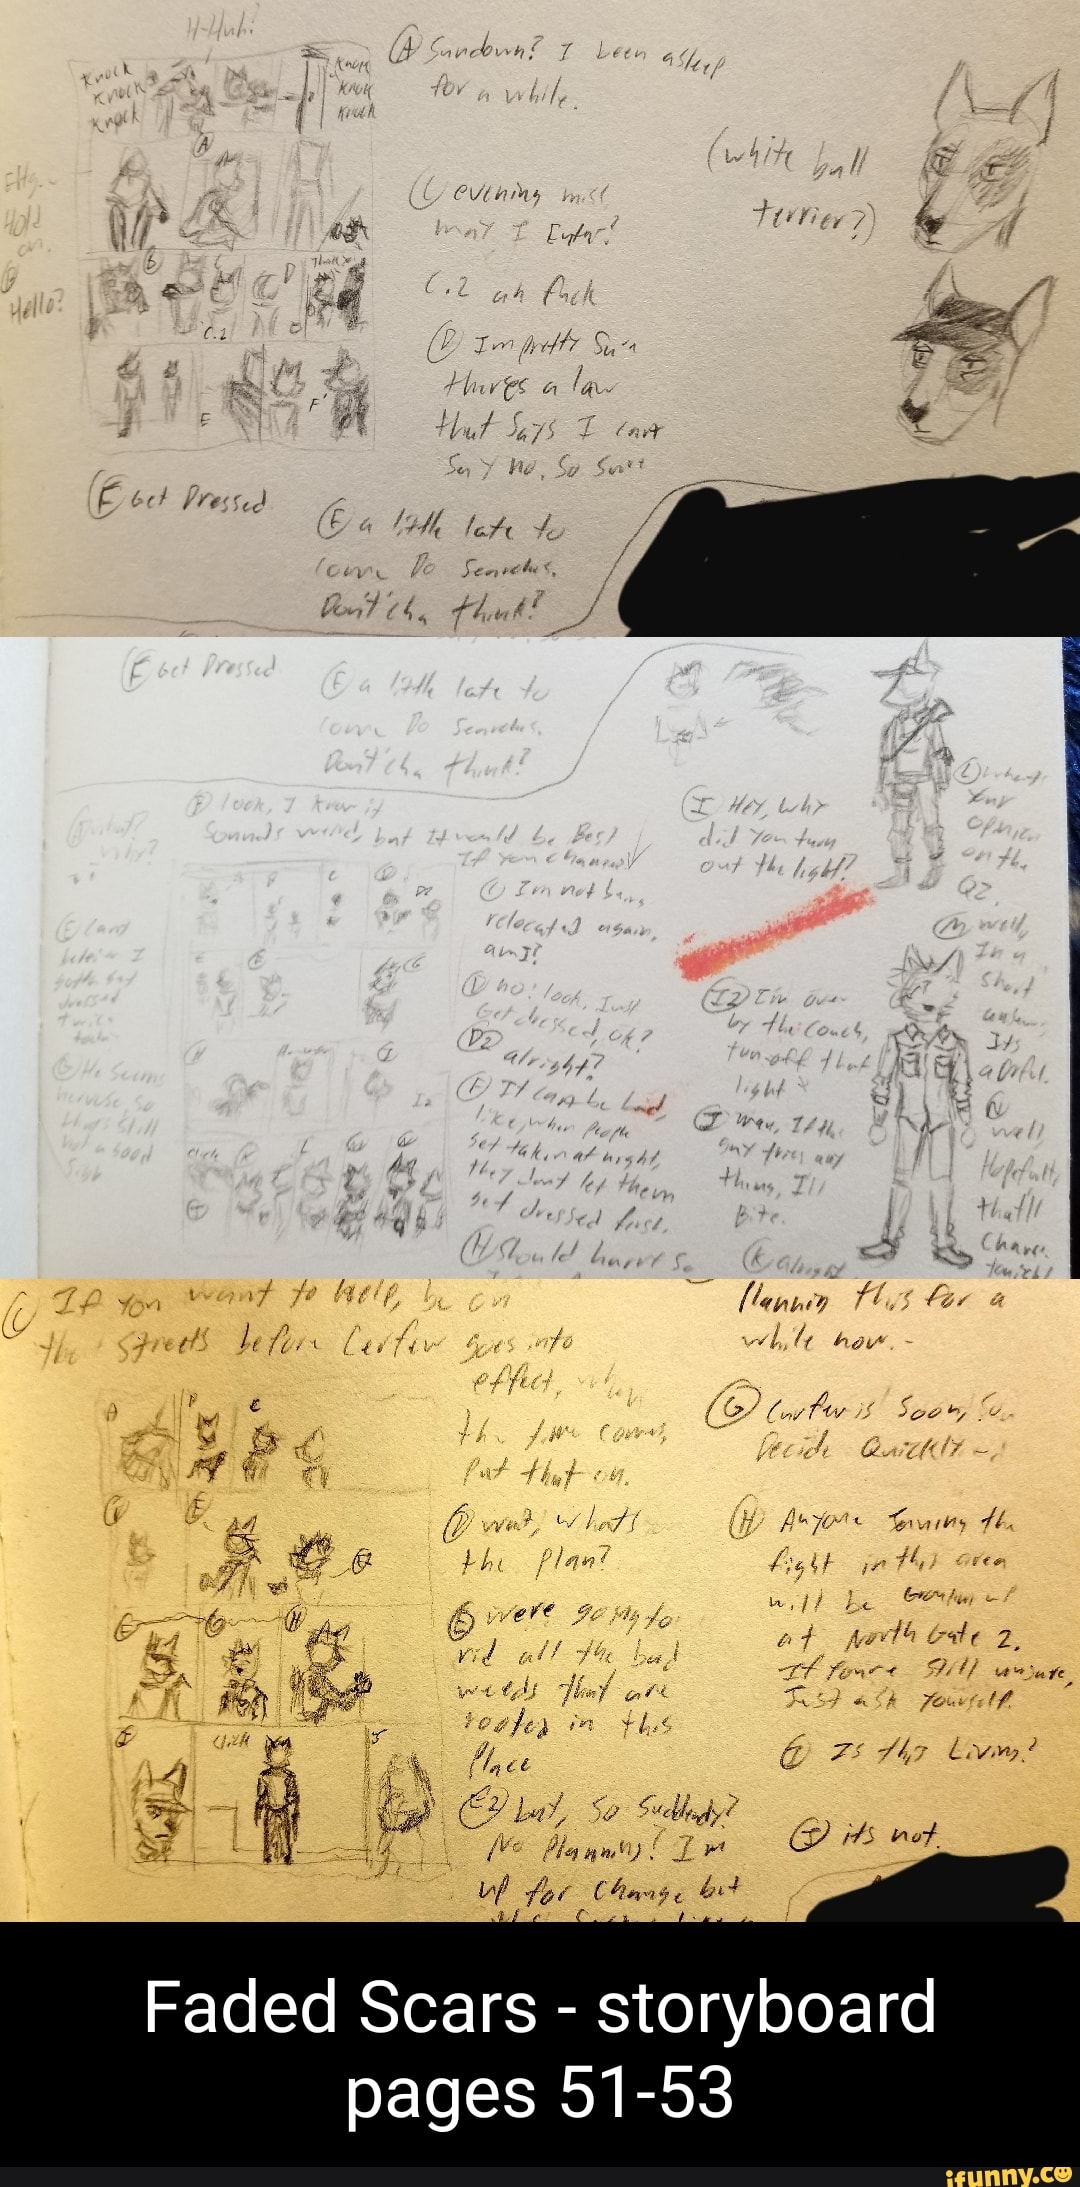 H-Huh?
Knock
Knock
Knock
Knock
Knock
Knock
A Sundown? I been asleep
for a while.
(white bull
terrier?)
A
Hold
on.
B
Hello?
C evening miss
may I Enter?
B
C
D
C.2
C.2 ah fuck
D Im pretty Sure
theres a law
that Says I cant
Say no. So Sure
E
F
E Get Dressed
F a little late to
come Do Searches.
Don't'cha think?
E Get Dressed
F a little late to
come Do Searches.
Don't'cha think?
B look, I know it
Sounds weird, but It would be Best
If you changed
C Im not being
relocated again,
am I?
D no! look, Just
Get dressed, ok?
D2
alright?
F It cant be bad,
like, when people
get taken at night,
they dont let them
get dressed first.
E Cant
believe I
gotta get
dressed
twice
G He Seems
nervous, So
thats Still
not a good
Sign
H Should have
I Hey, why
did You turn
out the light?
I2 Im over
by the couch,
turn off that
light
J man, If this
guy tries any
thing, Ill
Bite.
K alright
L whats
Your
opinion
on the
QZ.
M well,
In a
Short
answer,
Its
awful.
N
well,
Hopefully
that'll
Change
tonight
C If You want to help, be on
the Streets before Curfew goes into
effect, when
the time comes,
Put that on.
D wait, whats
the Plan?
E were going to
rid all the bad
weeds that are
rooted in this
Place
E2 but, So Suddenly?
No Planning! Im
up for Change but
Planning this for a
while now. -
G Curfew is Soon, So
Decide Quickly -
H Anyone Joining the
fight in this area
will be
at North Gate 2.
If Youre Still unsure,
Just ask Yourself.
I Is this Living?
J its not.
Click
Faded Scars - storyboard
pages 51-53
ifunny.co